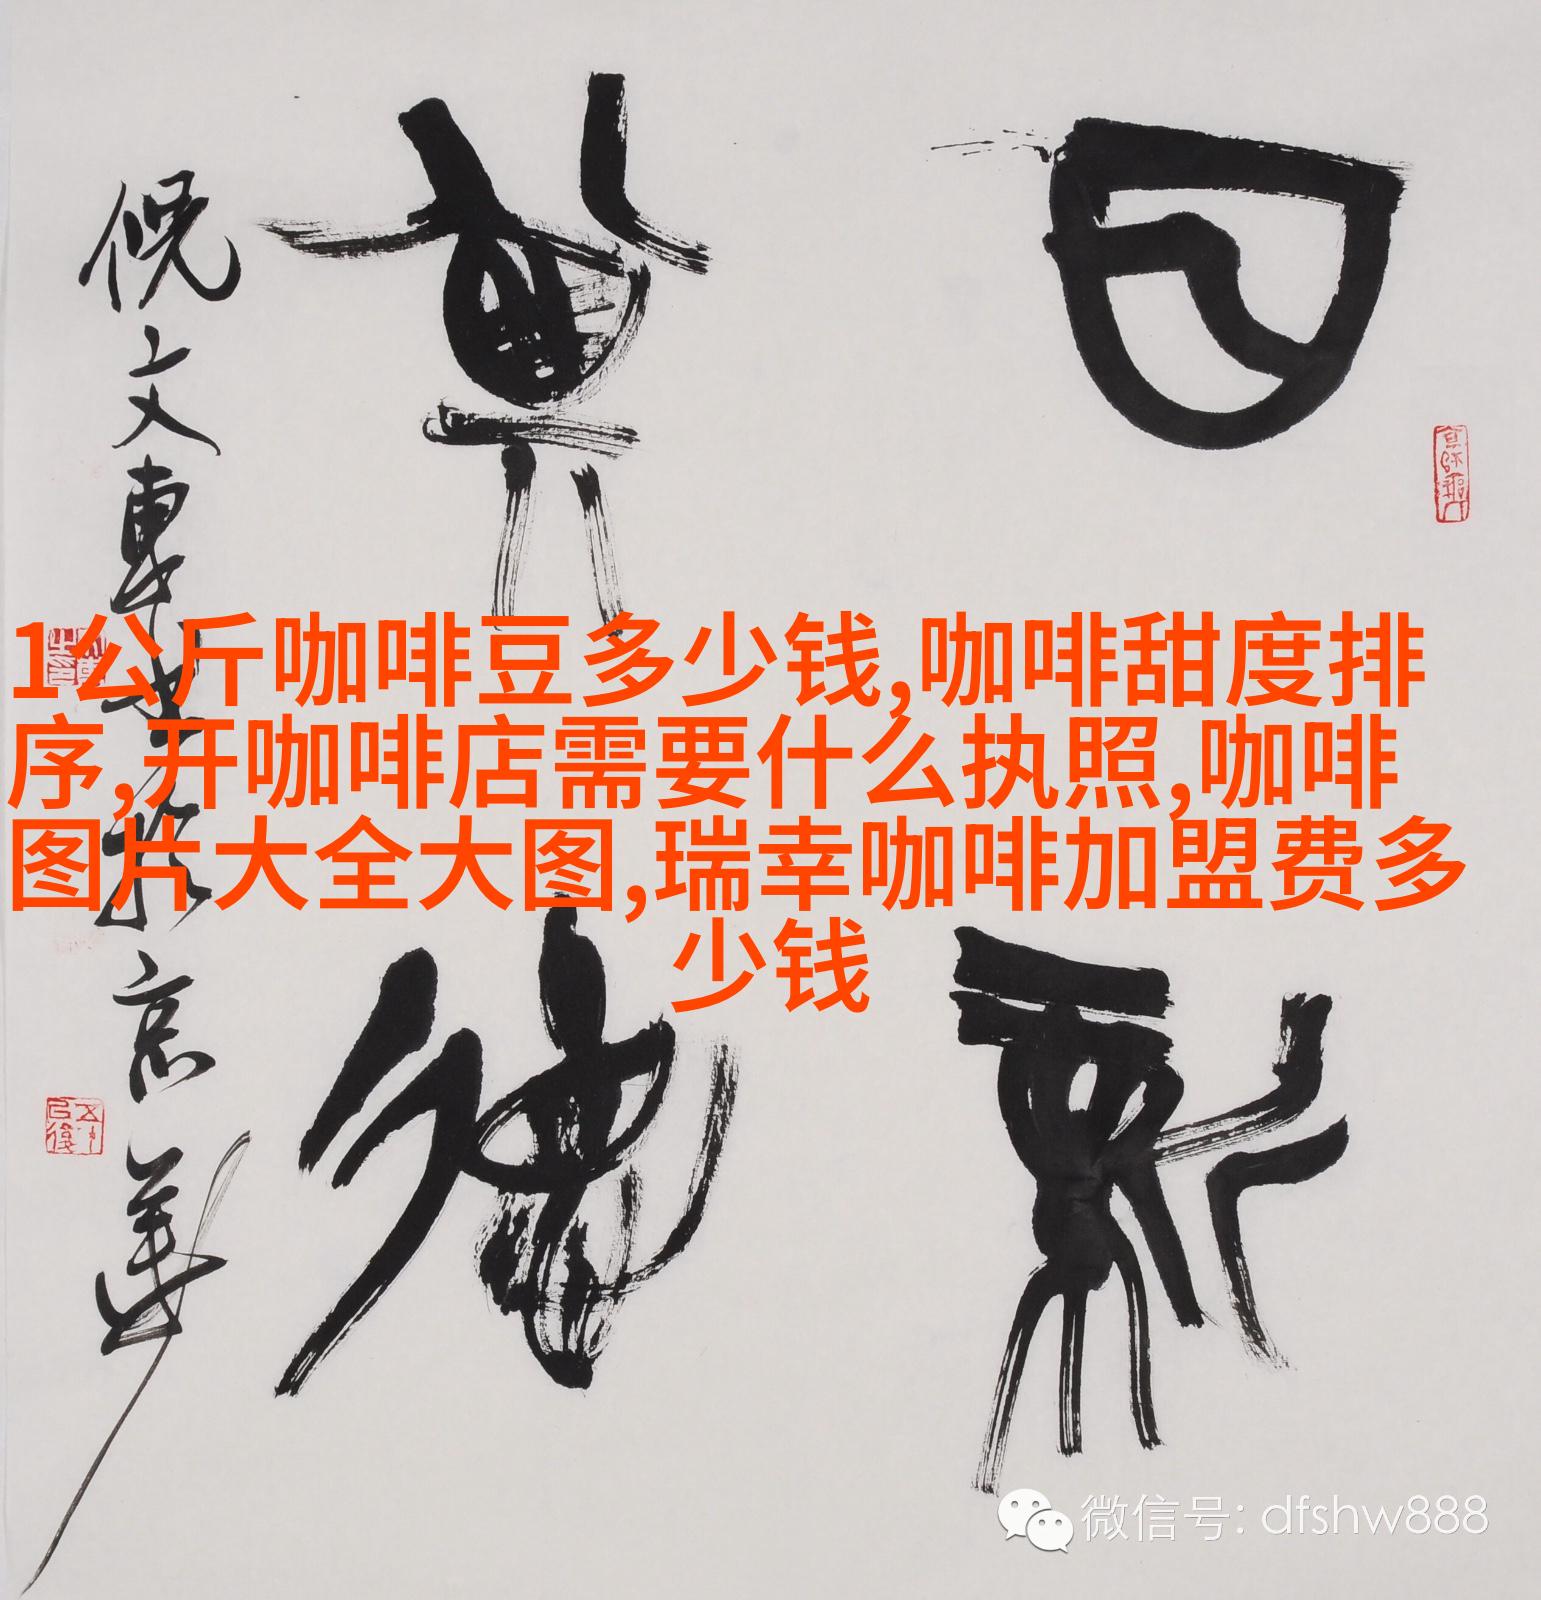 1公斤咖啡豆多少钱,咖啡甜度排
序,开咖啡店需要什么执照,咖啡
图片大全大图,瑞幸咖啡加盟费多
少钱
日新
其德
倪文東书於京華
微信号: dfshw888